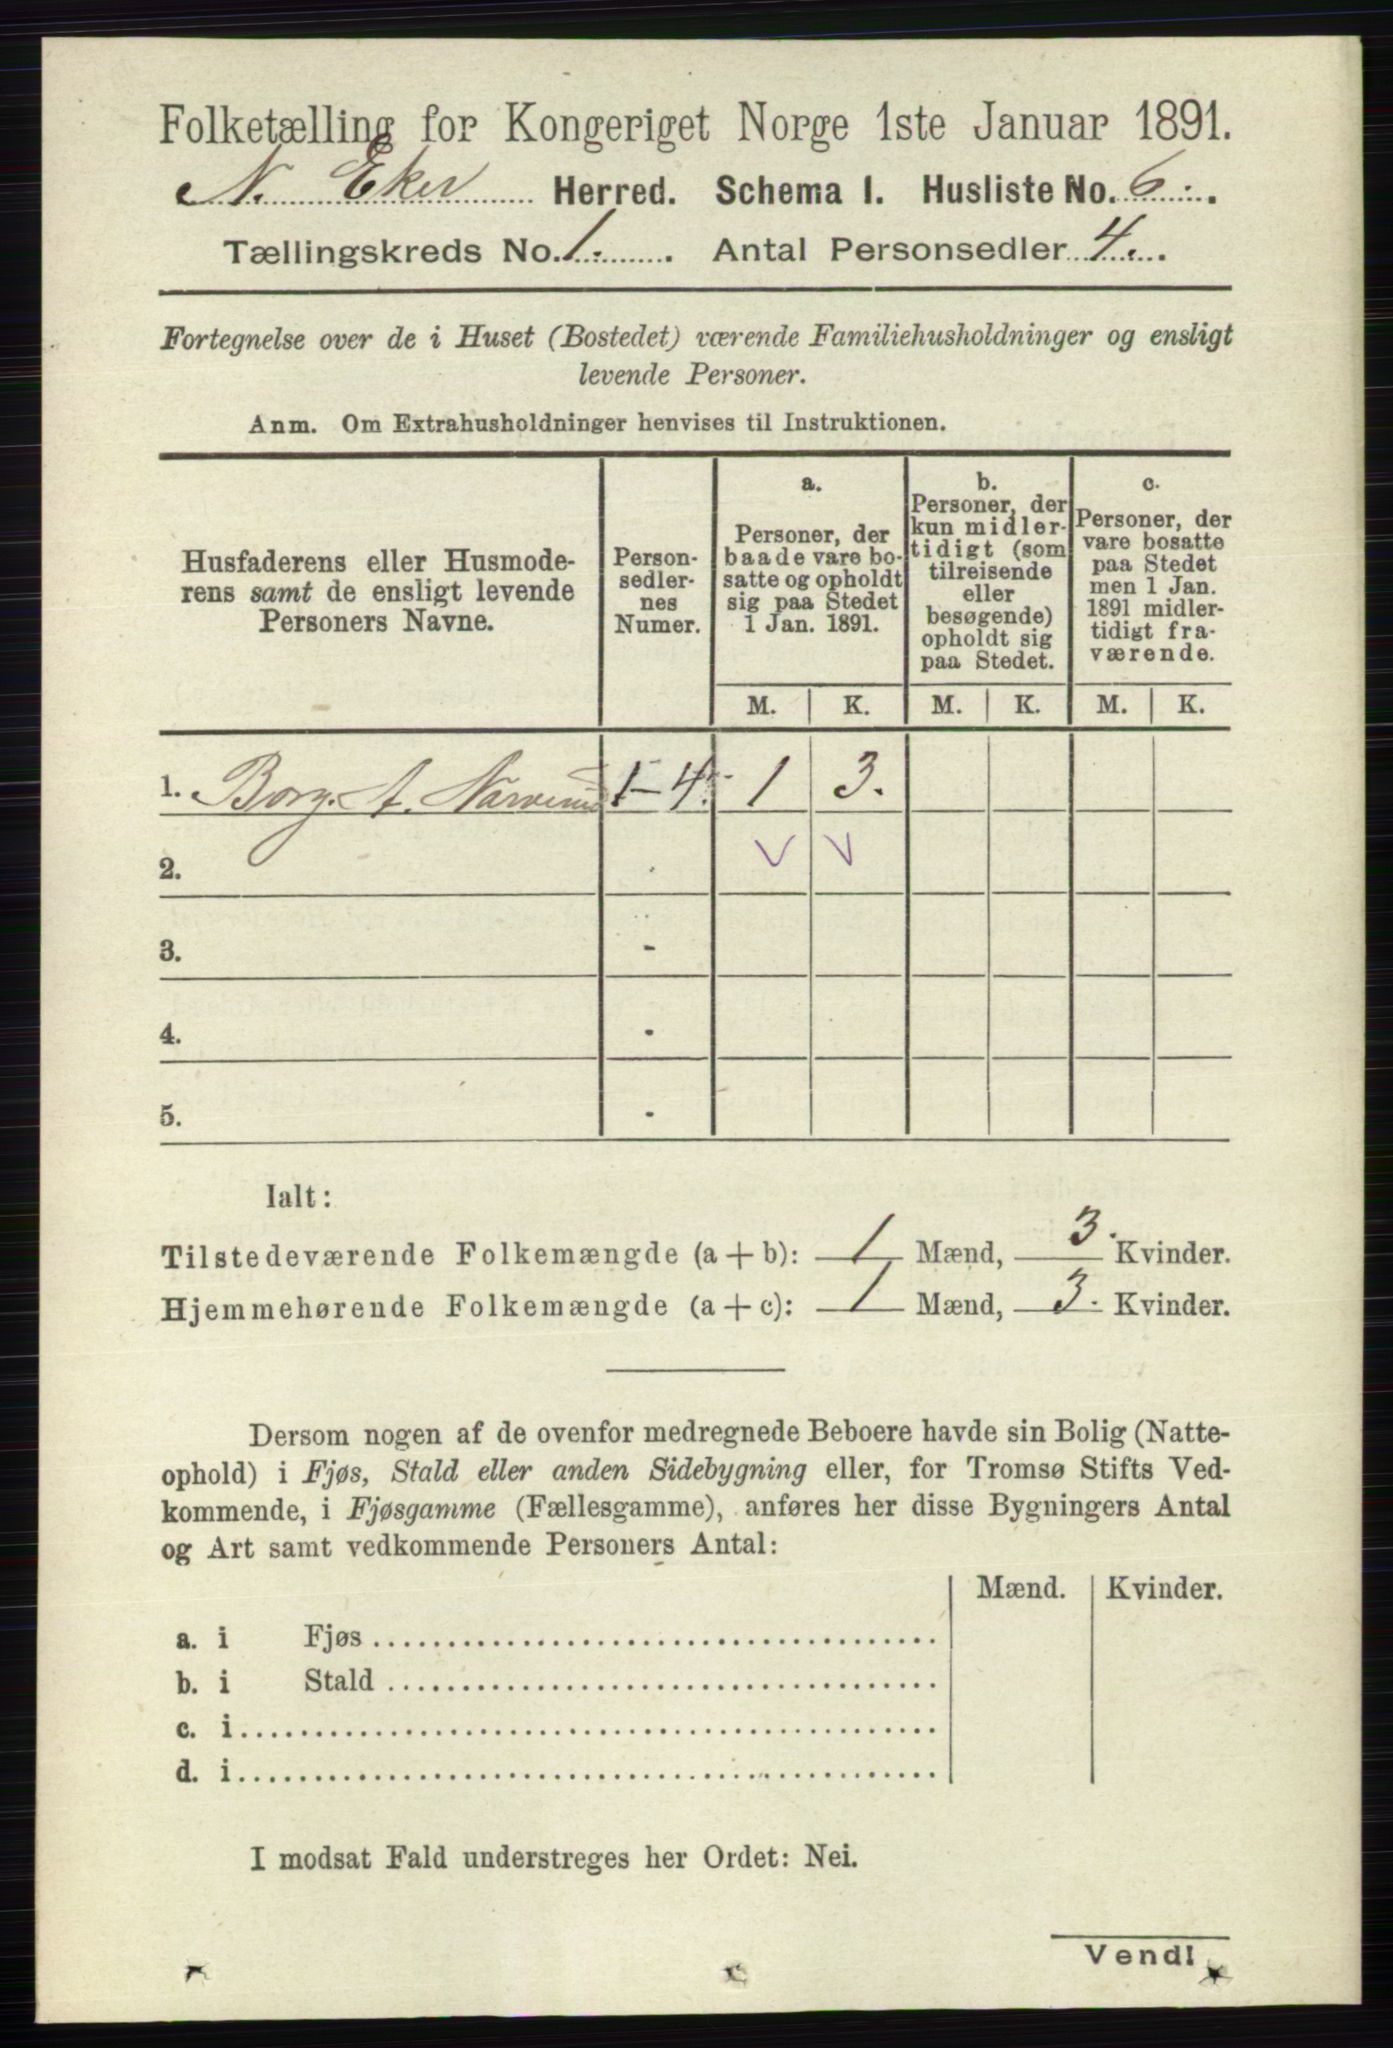 Folketælling for Kongeriget Norge 1ste Januar 1891.
N. Eker Herred. Schema I. Husliste No. 6.
Tællingskreds No. 1. Antal Personsedler 4.
Fortegnelse over de i Huset (Bostedet) værende Familiehusholdninger og ensligt
levende Personer.
Anm. Om Extrahusholdninger henvises til Instruktionen.
Husfaderens eller Husmode-
rens samt de ensligt levende
Personers Navne.
Person-
sedler-
nes
Numer.
a.
Personer, der
baade vare bo-
satte og opholdt
sig paa Stedet
1 Jan. 1891.
b.
Personer, der
kun midler-
tidigt (som
tilreisende
eller
besøgende)
opholdt sig
paa Stedet.
c.
Personer, der
vare bosatte
paa Stedet
men 1 Jan.
1891 midler-
tidigt fra-
værende.
M. K. M. K. M. K.
1. Borg. A. 1-4. 1 3.
2.
3. -
4. -
5. -
Ialt:
Tilstedeværende Folkemængde (a + b): 1 Mænd, 3. Kvinder.
Hjemmehørende Folkemængde (a + c): 1 Mænd, 3. Kvinder.
Dersom nogen af de ovenfor medregnede Beboere havde sin Bolig (Natte-
ophold) i Fjøs, Stald eller anden Sidebygning eller, for Tromsø Stifts Ved-
kommende, i Fjøsgamme (Fællesgamme), anføres her disse Bygningers Antal
og Art samt vedkommende Personers Antal:
Mænd. Kvinder.
a. i Fjøs
b. i Stald
c. i
d. i
I modsat Fald understreges her Ordet: Nei.
Vend!